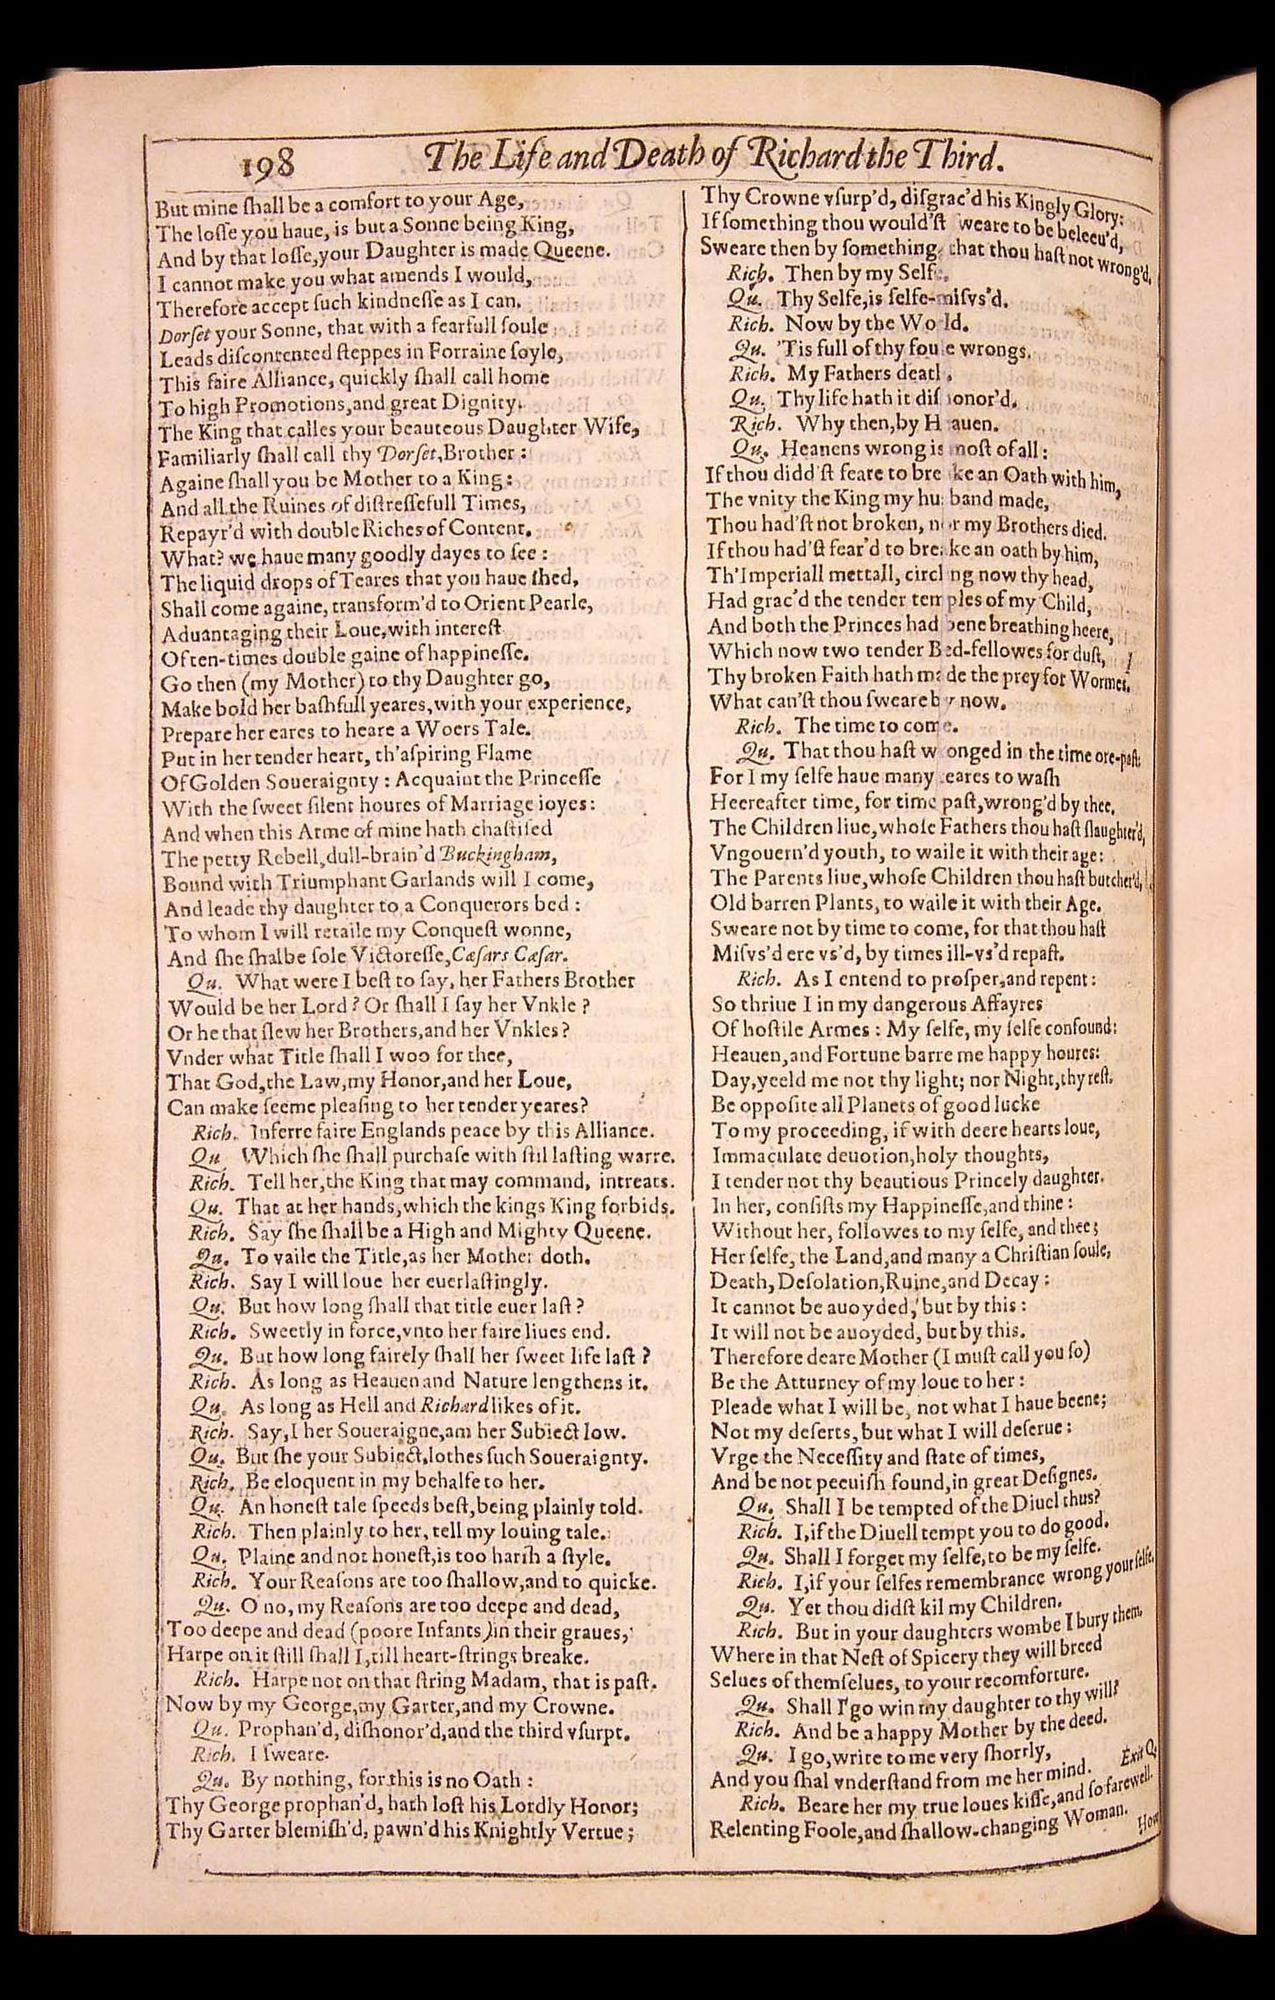 198
The Life and Death of Richard the Third.
But mine ſhall be a comfort to your Age,
The loſſe you haue, is but a Sonne being King,
And by that loſſe, your Daughter is made Queene.
I cannot make you what amends I would,
Therefore accept ſuch kindneſſe as I can.
Dorſet your Sonne, that with a fearfull ſoule
Leads diſcontented ſteppes in Forraine ſoyle,
This faire Alliance, quickly ſhall call home
To high Promotions, and great Dignity.
The King that calles your beauteous Daughter Wife,
Familiarly ſhall call thy Dorſet, Brother:
Againe ſhall you be Mother to a King:
And all the Ruines of diſtreſſefull Times,
Repayr'd with double Riches of Content.
What? we haue many goodly dayes to ſee:
The liquid drops of Teares that you haue ſhed,
Shall come againe, transform'd to Orient Pearle,
Aduantaging their Loue, with intereſt
Often-times double gaine of happineſſe.
Go then (my Mother) to thy Daughter go,
Make bold her baſhfull yeares, with your experience,
Prepare her eares to heare a Woers Tale.
Put in her tender heart, th'aſpiring Flame
Of Golden Soueraignty: Acquaint the Princeſſe
With the ſweet ſilent houres of Marriage ioyes:
And when this Arme of mine hath chaſtiſed
The petty Rebell, dull-brain'd Buckingham,
Bound with Triumphant Garlands will I come,
And leade thy daughter to a Conquerors bed:
To whom I will retaile my Conqueſt wonne,
And ſhe ſhalbe ſole Victoreſſe, Cæſars Cæſar.
Qu. What were I beſt to ſay, her Fathers Brother
Would be her Lord? Or ſhall I ſay her Vnkle?
Or he that ſlew her Brothers, and her Vnkles?
Vnder what Title ſhall I woo for thee,
That God, the Law, my Honor, and her Loue,
Can make ſeeme pleaſing to her tender yeares?
Rich. Inferre faire Englands peace by this Alliance.
Qu. Which ſhe ſhall purchaſe with ſtil laſting warre.
Rich. Tell her, the King that may command, intreats.
Qu. That at her hands, which the kings King forbids.
Rich. Say ſhe ſhall be a High and Mighty Queene.
Qu. To vaile the Title, as her Mother doth.
Rich. Say I will loue her euerlaſtingly.
Qu. But how long ſhall that title euer laſt?
Rich. Sweetly in force, vnto her faire liues end.
Qu. But how long fairely ſhall her ſweet life laſt?
Rich. As long as Heauen and Nature lengthens it.
Qu. As long as Hell and Richard likes of it.
Rich. Say, I her Soueraigne, am her Subiect low.
Qu. But ſhe your Subiect, lothes ſuch Soueraignty.
Rich. Be eloquent in my behalfe to her.
Qu. An honeſt tale ſpeeds beſt, being plainly told.
Rich. Then plainly to her, tell my louing tale.
Qu. Plaine and not honeſt, is too harſh a ſtyle.
Rich. Your Reaſons are too ſhallow, and to quicke.
Qu. O no, my Reaſons are too deepe and dead,
Too deepe and dead (poore Infants) in their graues,
Harpe on it ſtill ſhall I, till heart-ſtrings breake.
Rich. Harpe not on that ſtring Madam, that is paſt.
Now by my George, my Garter, and my Crowne.
Qu. Prophan'd, diſhonor'd, and the third vſurpt.
Rich. I ſweare.
Qu. By nothing, for this is no Oath:
Thy George prophan'd, hath loſt his Lordly Honor;
Thy Garter blemiſh'd, pawn'd his Knightly Vertue;
Thy Crowne vſurp'd, diſgrac'd his Kingly Glory:
If ſomething thou would'ſt ſweare to be beleeu'd,
Sweare then by ſomething, that thou haſt not wrong'd.
Rich. Then by my Selfe.
Qu. Thy Selfe, is ſelfe-miſvs'd.
Rich. Now by the World.
Qu. 'Tis full of thy foule wrongs.
Rich. My Fathers death.
Qu. Thy life hath it diſhonor'd.
Rich. Why then, by Heauen.
Qu. Heauens wrong is moſt of all:
If thou didd'ſt feare to breake an Oath with him,
The vnity the King my husband made,
Thou had'ſt not broken, nor my Brothers died.
If thou had'ſt fear'd to breake an oath by him,
Th'Imperiall mettall, circling now thy head,
Had grac'd the tender temples of my Child,
And both the Princes had bene breathing heere,
Which now two tender Bed-fellowes for duſt,
Thy broken Faith hath made the prey for Wormes.
What can'ſt thou ſweare by now.
Rich. The time to come.
Qu. That thou haſt wronged in the time ore-paſt:
For I my ſelfe haue many teares to waſh
Heereafter time, for time paſt, wrong'd by thee.
The Children liue, whoſe Fathers thou haſt ſlaughter'd,
Vngouern'd youth, to waile it with their age:
The Parents liue, whoſe Children thou haſt butcher'd,
Old barren Plants, to waile it with their Age.
Sweare not by time to come, for that thou haſt
Miſvs'd ere vs'd, by times ill-vs'd repaſt.
Rich. As I entend to proſper, and repent:
So thriue I in my dangerous Affayres
Of hoſtile Armes: My ſelfe, my ſelfe confound:
Heauen, and Fortune barre me happy houres:
Day, yeeld me not thy light; nor Night, thy reſt.
Be oppoſite all Planets of good lucke
To my proceeding, if with deere hearts loue,
Immaculate deuotion, holy thoughts,
I tender not thy beautious Princely daughter.
In her, conſiſts my Happineſſe, and thine:
Without her, followes to my ſelfe, and thee;
Her ſelfe, the Land, and many a Chriſtian ſoule,
Death, Deſolation, Ruine, and Decay:
It cannot be auoyded, but by this:
It will not be auoyded, but by this.
Therefore deare Mother (I muſt call you ſo)
Be the Atturney of my loue to her:
Pleade what I will be, not what I haue beene;
Not my deſerts, but what I will deſerue:
Vrge the Neceſſity and ſtate of times,
And be not peeuiſh found, in great Deſignes.
Qu. Shall I be tempted of the Diuel thus?
Rich. I, if the Diuell tempt you to do good.
Qu. Shall I forget my ſelfe, to be my ſelfe.
Rich. I, if your ſelfes remembrance wrong your ſelfe.
Qu. Yet thou didſt kil my Children.
Rich. But in your daughters wombe I bury them.
Where in that Neſt of Spicery they will breed
Selues of themſelues, to your recomforture.
Qu. Shall I go win my daughter to thy will?
Rich. And be a happy Mother by the deed.
Qu. I go, write to me very ſhortly,
And you ſhal vnderſtand from me her mind. Exit Q.
Rich. Beare her my true loues kiſſe, and ſo farewell.
Relenting Foole, and ſhallow-changing Woman.
How